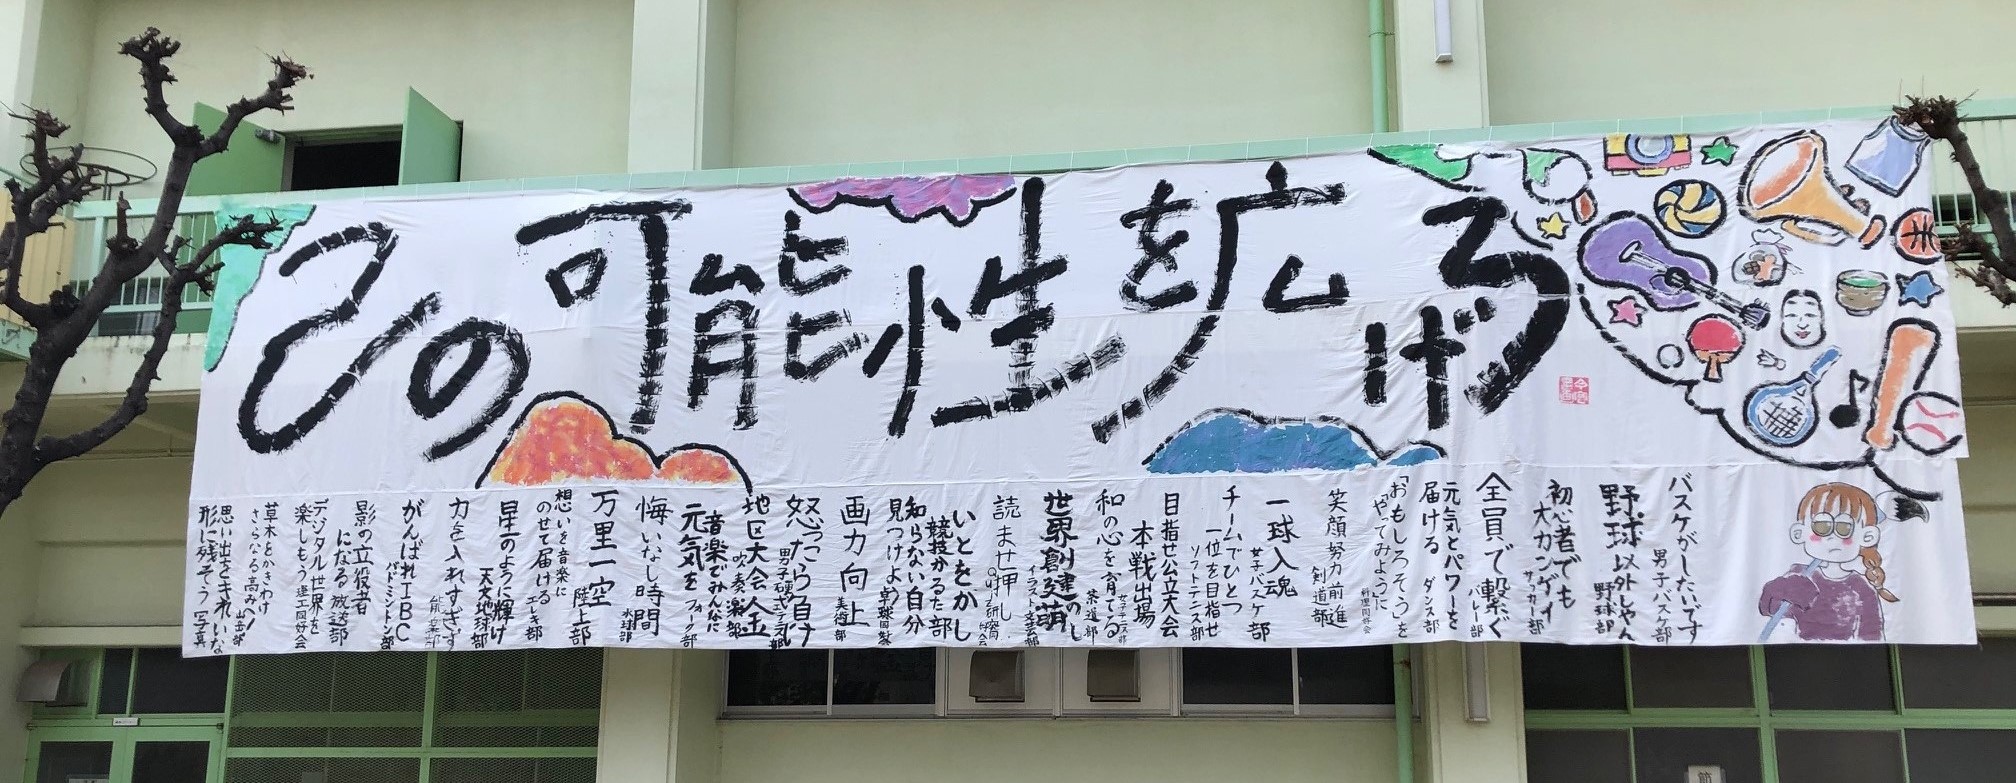 この可能性を広げろ
バスケがしたいです
男子バスケ部
野球以外しゃん
野球部
初心者でも
大カンゲイ
サッカー部
全員で繋ぐ
バレー部
元気とパワーを
届ける ダンス部
「おもしろそう」を
やってみように
料理同好会
笑顔努力前進
剣道部
一球入魂
女子バスケ部
チームでひとつ
一位を目指せ
ソフトテニス部
目指せ公立大会
本戦出場
和の心を育てる
茶道部
世界創建の
萌し
イラスト文芸部
読ませ押し
いとをかし
競技かるた部
知らない自分
見つけよう
画力向上
美術部
怒ったら負け
男子硬式テニス部
地区大会金
吹奏楽部
音楽でみんなに
元気を フォーク部
悔いなし時間
水球部
万里一空
陸上部
想いを音楽に
のせて届ける
エレキ部
星のように輝け
天文地球部
力を入れすぎず
能楽部
がんばれIBC
バドミントン部
影の立役者
になる 放送部
デジタル世界を
楽しもう 理工同好会
草木をかきわけ
さらなる高みへ!
山岳部
思い出をきれいな
形に残そう 写真